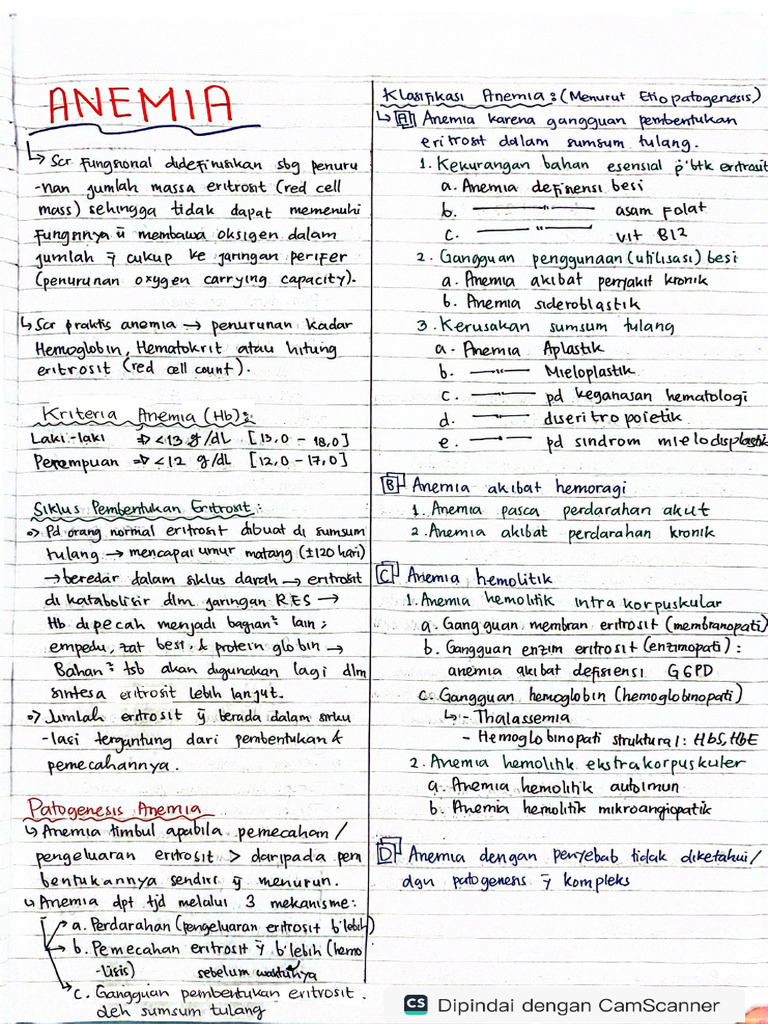 ANEMIA
↳ Scr fungsional didefinisikan sbg penuru
-nan jumlah massa eritrosit (red cell
mass) sehingga tidak dapat memenuhi
fungsinya ū membawa oksigen dalam
jumlah ȳ cukup ke jaringan perifer
(penurunan oxygen carrying capacity).
↳ Scr praktis anemia → penurunan kadar
Hemoglobin, Hematokrit atau hitung
eritrosit (red cell count).
Kriteria Anemia (Hb):
Laki-laki ⇒ <13 g/dL [13,0 - 18,0]
Perempuan ⇒ <12 g/dL [12,0 - 17,0]
Siklus Pembentukan Eritrosit:
Pd orang normal eritrosit dibuat di sumsum
tulang → mencapai umur matang (±120 hari)
→ beredar dalam siklus darah → eritrosit
di katabolisir dlm jaringan RES →
Hb dipecah menjadi bagian² lain:
empedu, zat besi, & protein globin →
Bahan² tsb akan digunakan lagi dlm
sintesa eritrosit lebih lanjut.
Jumlah eritrosit ȳ berada dalam sirku
-lasi tergantung dari pembentukan &
pemecahannya.
Patogenesis Anemia
↳ Anemia timbul apabila pemecahan/
pengeluaran eritrosit > daripada pem
bentukannya sendiri ȳ menurun.
↳ Anemia dpt tjd melalui 3 mekanisme:
a. Perdarahan (pengeluaran eritrosit b'lebih)
b. Pemecahan eritrosit ȳ b'lebih (hemo
-lisis) sebelum waktunya
c. Gangguan pembentukan eritrosit.
oleh sumsum tulang
Klasifikasi Anemia: (Menurut Etiopatogenesis)
↳ A Anemia karena gangguan pembentukan
eritrosit dalam sumsum tulang.
1. Kekurangan bahan esensial p'btk eritrosit
a. Anemia defisiensi besi
b. —"— asam folat
c. —"— vit B12
2. Gangguan penggunaan (utilisasi) besi
a. Anemia akibat penyakit kronik
b. Anemia sideroblastik
3. Kerusakan sumsum tulang
a. Anemia Aplastik
b. —"— Mieloplastik
c. —"— pd keganasan hematologi
d. —"— diseritropoietik
e. —"— pd sindrom mielodisplastik
B Anemia akibat hemoragi
1. Anemia pasca perdarahan akut
2. Anemia akibat perdarahan kronik
C Anemia hemolitik
1. Anemia hemolitik intrakorpuskular
a. Gangguan membran eritrosit (membranopati)
b. Gangguan enzim eritrosit (enzimopati):
anemia akibat defisiensi G6PD
c. Gangguan hemoglobin (hemoglobinopati)
↳ - Thalassemia
- Hemoglobinopati struktural: HbS, HbE
2. Anemia hemolitik ekstrakorpuskuler
a. Anemia hemolitik autoimun
b. Anemia hemolitik mikroangiopatik
D Anemia dengan penyebab tidak diketahui/
dgn patogenesis ȳ kompleks
CS Dipindai dengan CamScanner